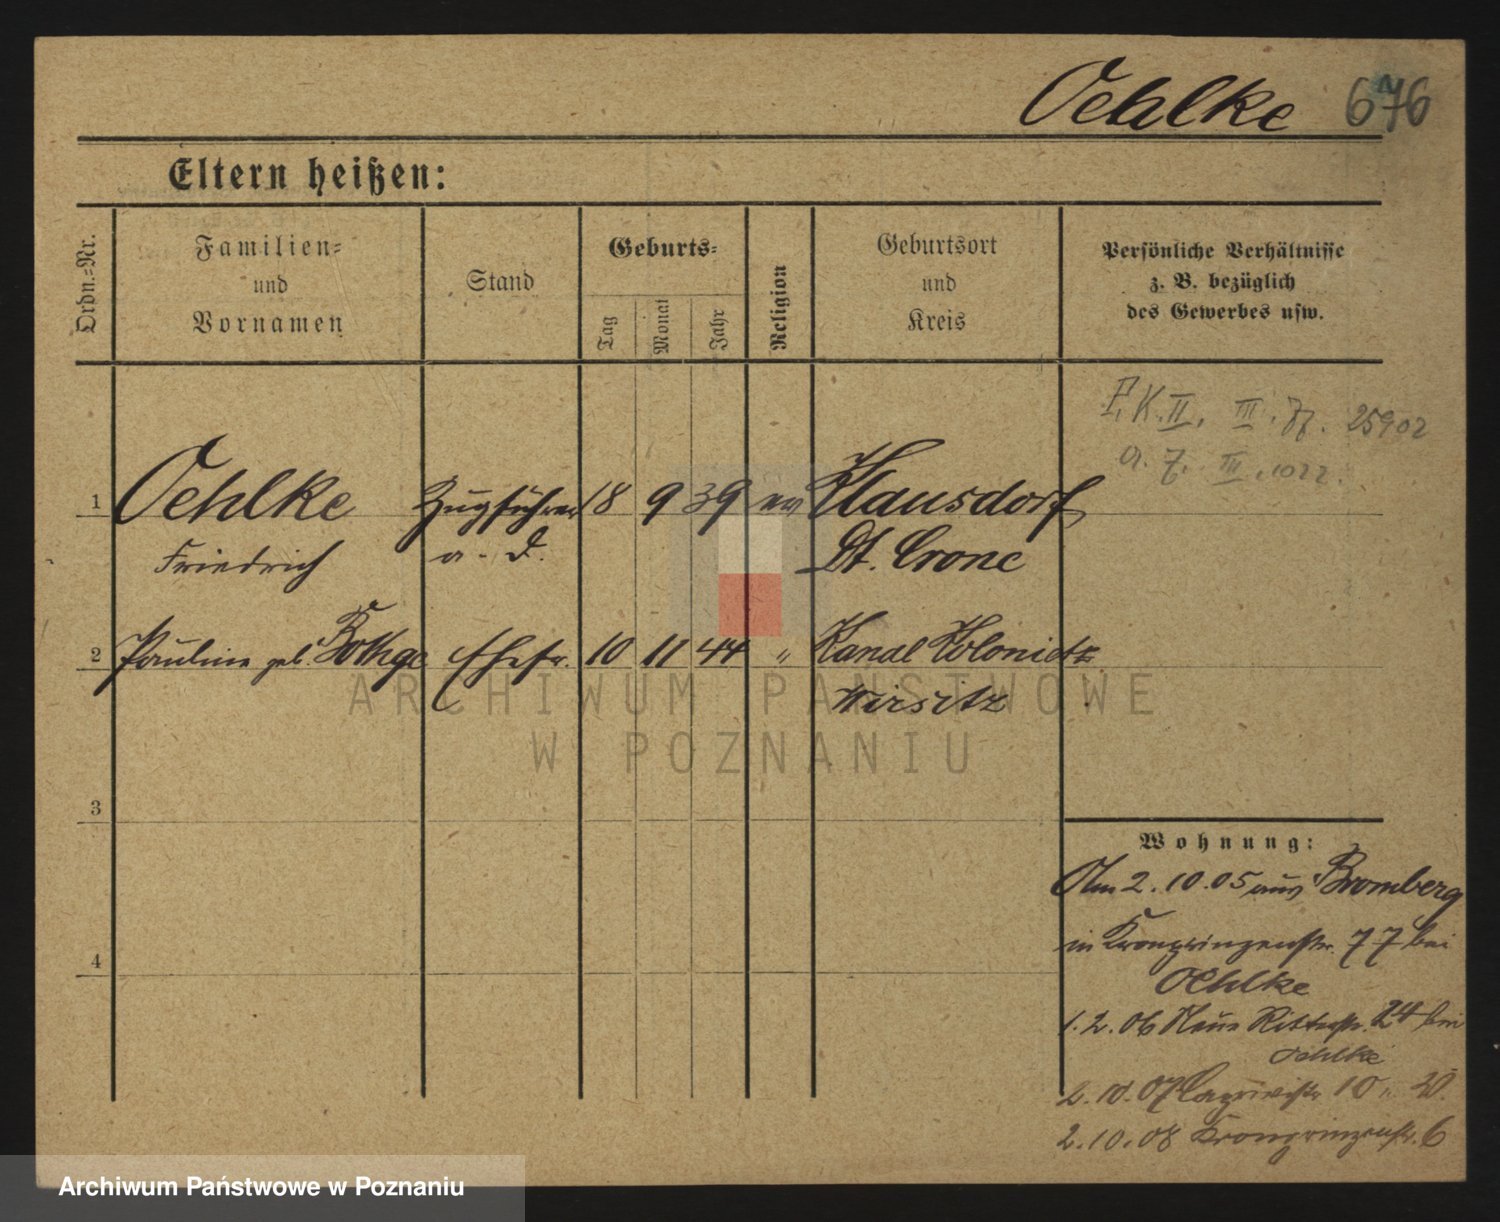 Oehlke 676
Eltern heißen:
Ordn.=Nr.
Familien=
und
Vornamen
Stand
Geburts=
Tag
Monat
Jahr
Religion
Geburtsort
und
Kreis
Persönliche Verhältnisse
z. B. bezüglich
des Gewerbes usw.
P. K. II, III. 25902
a. J. III. 1022.
1 Oehlke Zugführer 18 9 39 ev Klausdorf
Friedrich a. D. Dt. Crone
2 Pauline geb. Bothge Ehefr. 10 11 44 " Kanal Kolonie
Wirsitz
3
4
Wohnung:
Am 2.10.05 aus Bromberg
in Kronprinzenstr. 77 bei
Oehlke
1.2.06 Neue Ritterstr. 24 bei
Oehlke
2.10.07 10
2.10.08 Kronprinzenstr. 6
ARCHIWUM PAŃSTWOWE
W POZNANIU
Archiwum Państwowe w Poznaniu